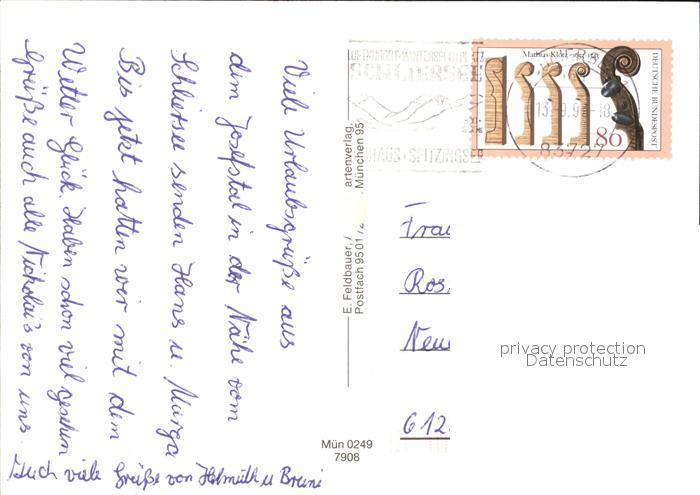 Viele Urlaubsgrüße aus
dem Josefstal in der Nähe vom
Schliersee senden Hans u. Marga
Bis jetzt hatten wir mit dem
Wetter Glück. Haben schon viel gesehen
Grüße auch alle Nickolai's von uns.
Auch viele Grüße von Helmuth u Bruni
E. Feldbauer, /
Postfach 95 01
artenverlag,
München 95
Mün 0249
7908
SCHLIERSEE
SPITZINGSEE
Mathias Klotz
DEUTSCHE BUNDESPOST
80
83727
Frau
Ros
Neu
612
privacy protection
Datenschutz